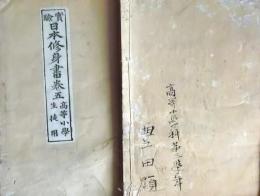 實驗
日本修身書卷五
高等小學
生徒用
高等小學科第三學年
田